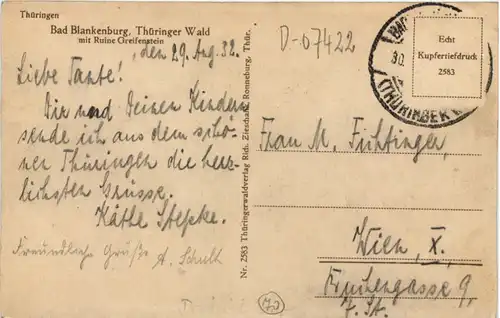 Thüringen
Bad Blankenburg, Thüringer Wald
mit Ruine Greifenstein
den 29. Aug. 32.
Liebe Tante!
Dir und Deinen Kindern
sende ich aus dem schö-
nen Thüringen die herz-
lichsten Grüsse.
Käthe Stepke.
Freundliche Grüße A. Schult
Nr. 2583 Thüringerwaldverlag Rich. Zieschank, Ronneburg, Thür.
D-07422
Echt
Kupfertiefdruck
2583
(THÜRINGER
Frau M. Fichtinger,
Wien, X.,
9,
7. St.
70